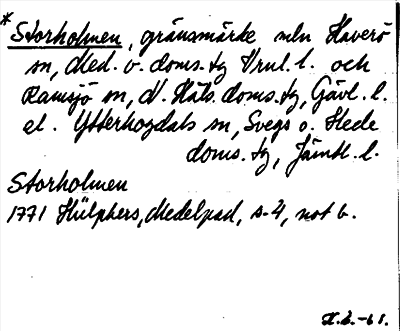 * Storholmen, gränsmärke mln Haverö
sn, Med. v. doms.tg Vrnl. l. och
Ramsjö sn, N. Häls. doms.tg, Gävl. l.
el. Ytterhogdals sn, Svegs o. Hede
doms. tg, Jämtl. l.
Storholmen
1771 Hülphers, Medelpad, s. 4, not b.
-61.